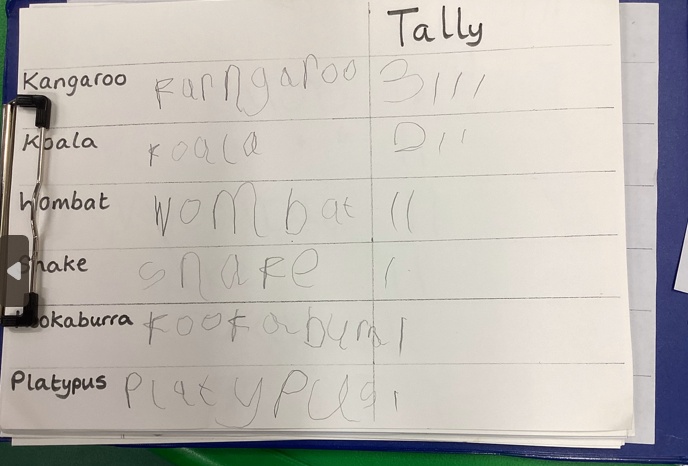 Tally
Kangaroo Kanngaroo 3 | | |
Koala koala | |
Wombat Wombat | |
Snake snake |
Kookaburra kookabura |
Platypus Platypus |